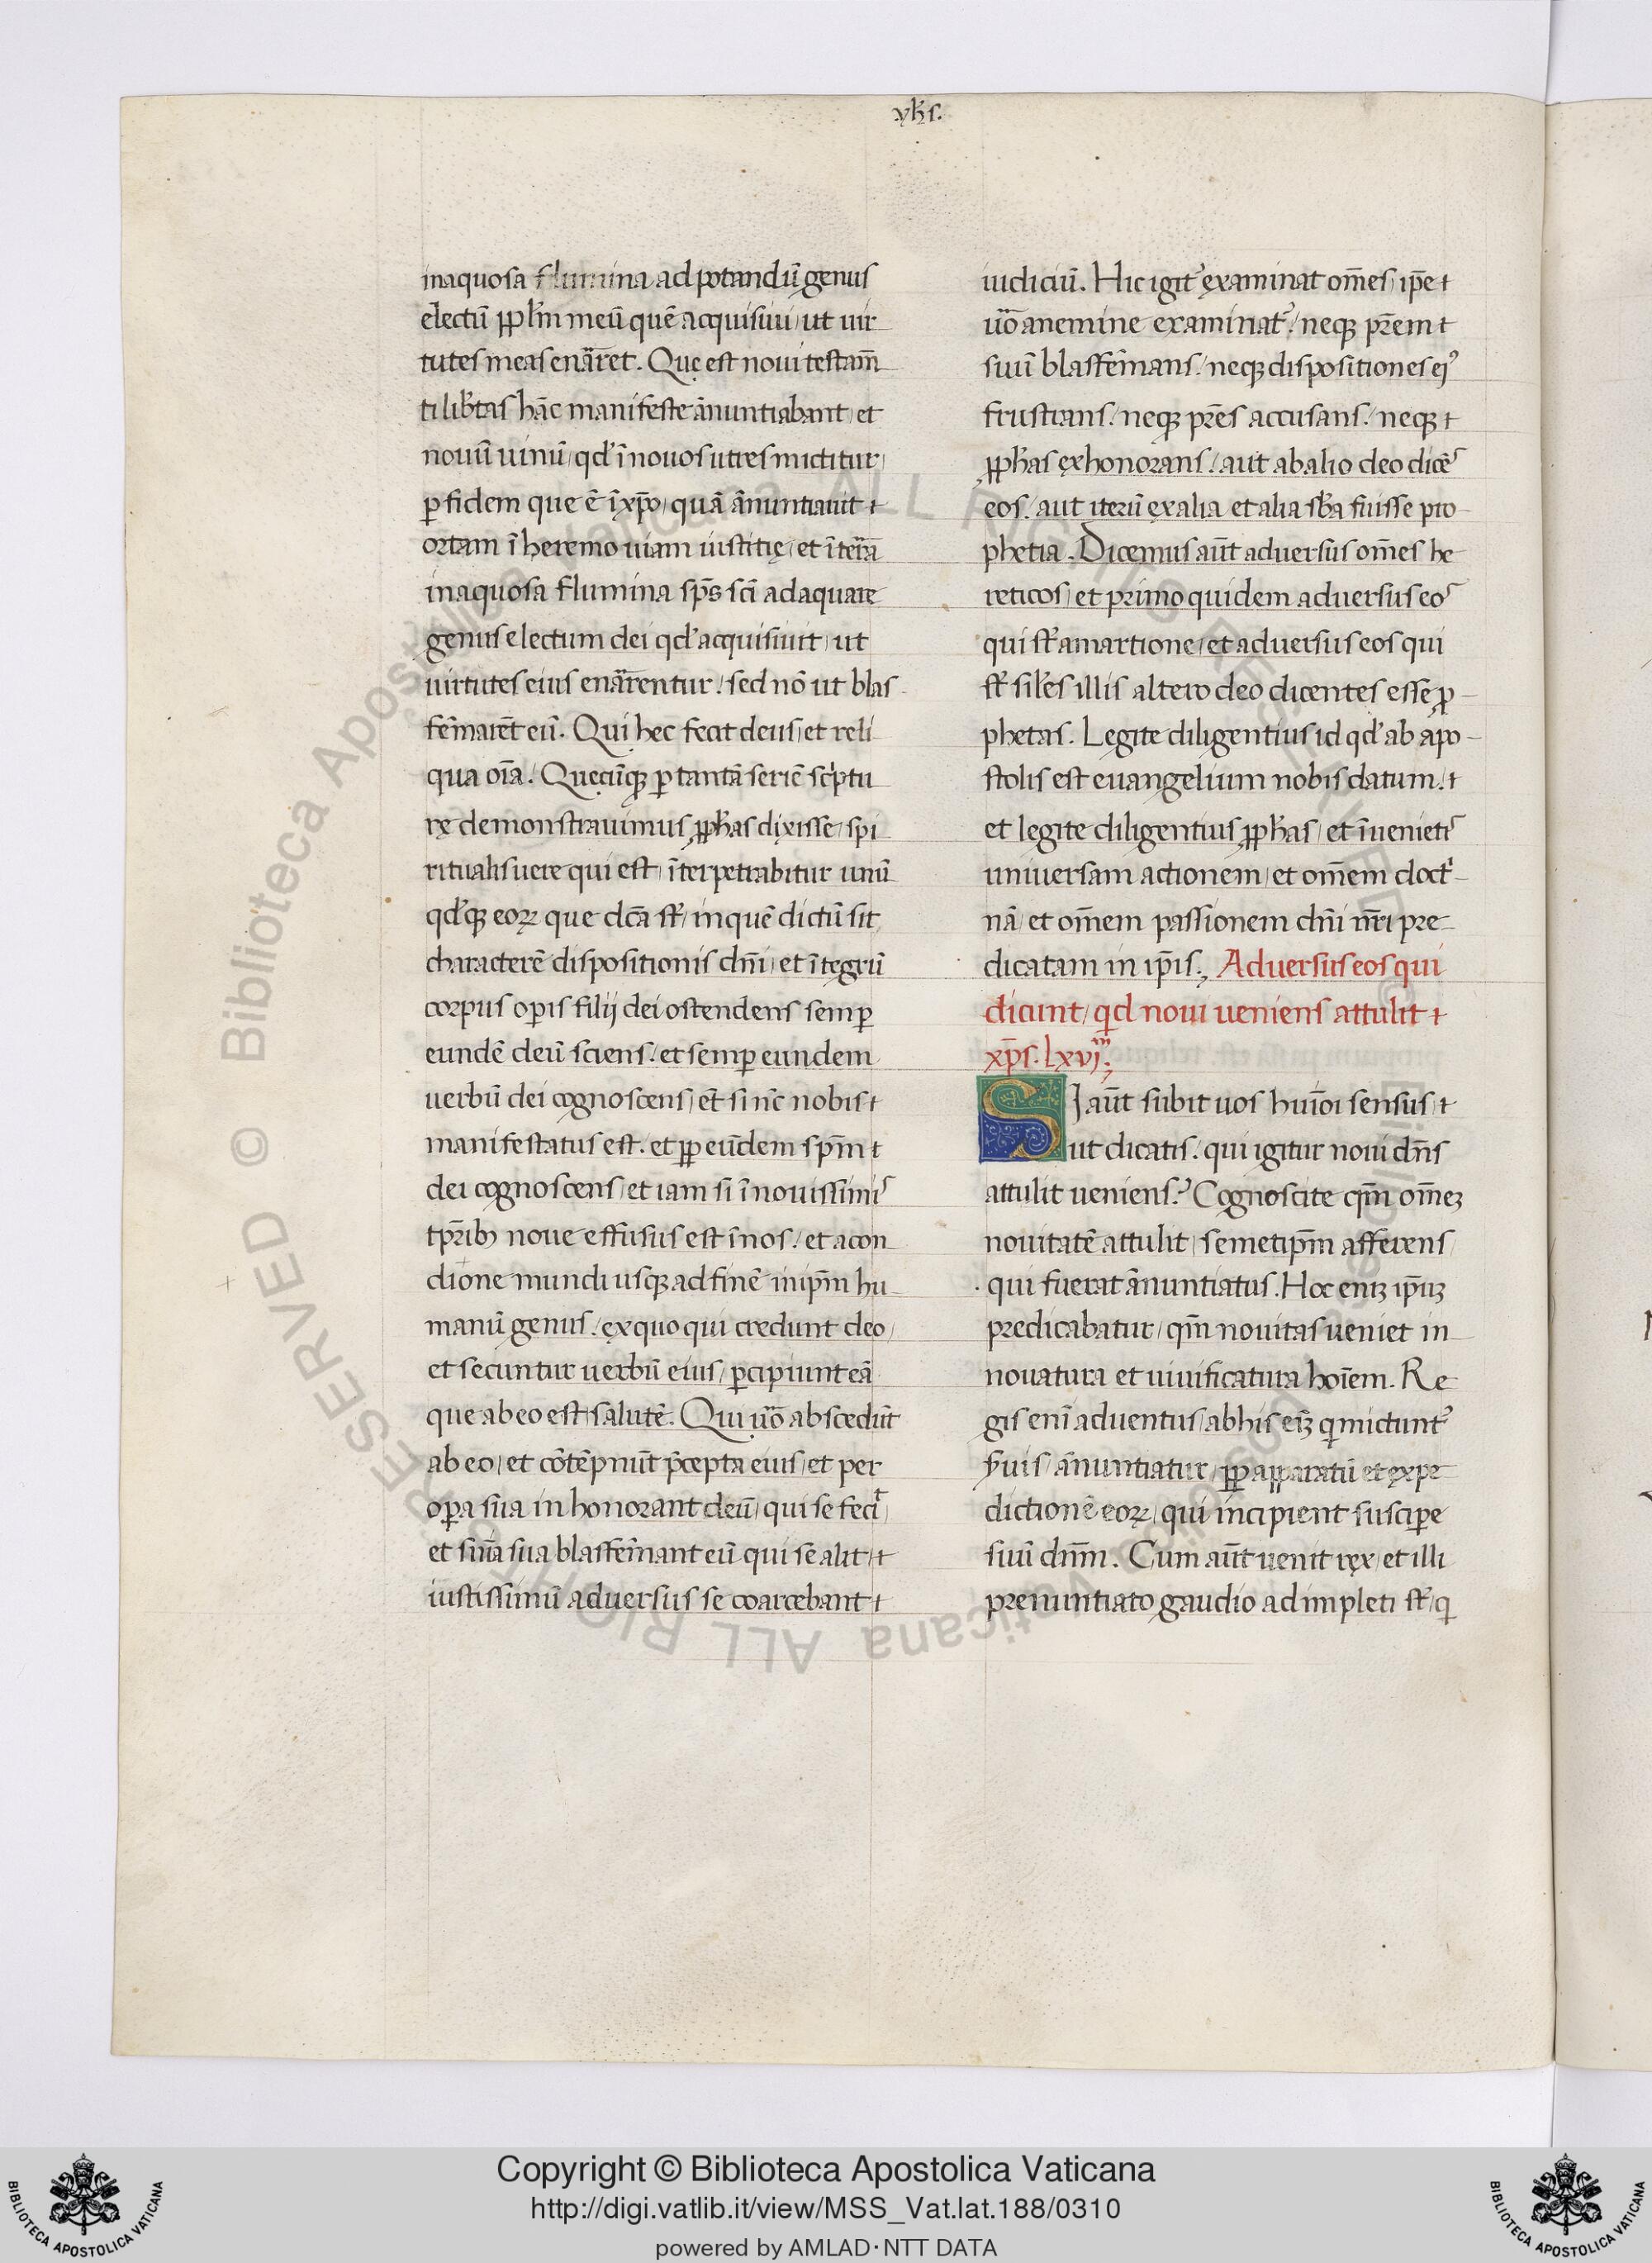 yhs.
inaquosa flumina ad potandū genus
electū pplm̄ meū quē acquisiui, ut uir
tutes meas enarret. Quę est noui testam̄
ti lib̕tas hāc manifeste ānuntiabant, et
nouū uinū, qd̕ ī nouos utres mictitur,
ꝑ fidem que ē ī xp̄o, quā ānuntiauit
ortam ī heremo uiam iustitię, et ī terrā
inaquosa flumina sp̄s sc̄i adaquare
genus electum dei qd̕ acquisiuit, ut
uirtutes eius enarrentur, sed nō ut blas
fēmarēt eū. Qui hec fecit deus, et reli
qua oīa. Quęcūqꝫ ꝑ tantā seriē sc̕ptu
rę demonstrauimus, ꝓphas dixisse, spi
ritualis uere qui est, īterpetrabitur unū
qd̕qꝫ eoꝝ que dc̄a st̕, in quē dictū sit
characterē dispositionis dn̄i, et ītegrū
corpus oꝑis filij dei ostendens semꝑ
eundē deū sciens, et semꝑ eundem
uerbū dei cognoscens, et̄ si nc̄ nobis
manifestatus est, et ꝑꝑ eūdem spm̄
dei cognoscens, et iam si ī nouissimis
tp̄ribꝫ noue effusus est ī nos, et a con
ditione mundi usqꝫ ad finē in ip̄m hu
manū genus, ex quo qui credunt deo,
et secuntur uerbū eius, ꝑcipiunt eā
que ab eo est salutē. Qui uo᷑ abscedūt
ab eo, et cōtēpnūt p̄cepta eius, et per
oꝑa sua in honorant deū, qui se fecit,
et sn̄ia sua blasfēmant eū qui sē alit,
iustissimū aduersus se coarcebant
iudiciū. Hic igit̕ examinat om̄es, ip̄e
uo᷑ a nemine examinat̕, neqꝫ pr̄em
suū blasfēmans, neqꝫ dispositiones ei᾽
frustrans, neqꝫ pr̄es accusans, neqꝫ
ꝓphas exhonorans, aut ab alio deo dicēs
eos, aut iterū ex alia et alia sb̄a fuisse pro
phetia. Dicemus aūt aduersus om̄es he
reticos, et primo quidem aduersus eos
qui st̕ a martione, et aduersus eos qui
st̕ siles illis altero deo dicentes esse ꝓ
phetas. Legite diligentius id qd̕ ab apo
stolis est euangelium nobis datum,
et legite diligentius ꝓphas, et īuenietis
uniuersam actionem, et om̄em doct̕
nā, et om̄em passionem dn̄i nr̄i pre
dicatam in ip̄is. Aduersus eos qui
dicunt, qd noui ueniens attulit
xp̄s. lxvi.
SI aūt subit uos hui᾽oi sensus,
ut dicatis. qui igitur noui dn̄s
attulit ueniens? Cognoscite qm̄ om̄eꝫ
nouitatē attulit, semetip̄m afferens
qui fuerat ānuntiatus. Hoc eniꝫ ip̄uꝫ
predicabatur, qm̄ nouitas ueniet in
nouatura et uiuificatura hoīem. Re
gis enī aduentus, ab his eīꝫ qi mictunt᾽
s̕uis, ānuntiatur, ꝓꝑ apparatū et expe
dictionē eoꝝ, qui incipient suscipe
suū dnm̄. Cum aūt uenit rex, et illi
prenuntiato gaudio adimpleti st̕, q
Copyright © Biblioteca Apostolica Vaticana
http://digi.vatlib.it/view/MSS_Vat.lat.188/0310
powered by AMLAD·NTT DATA